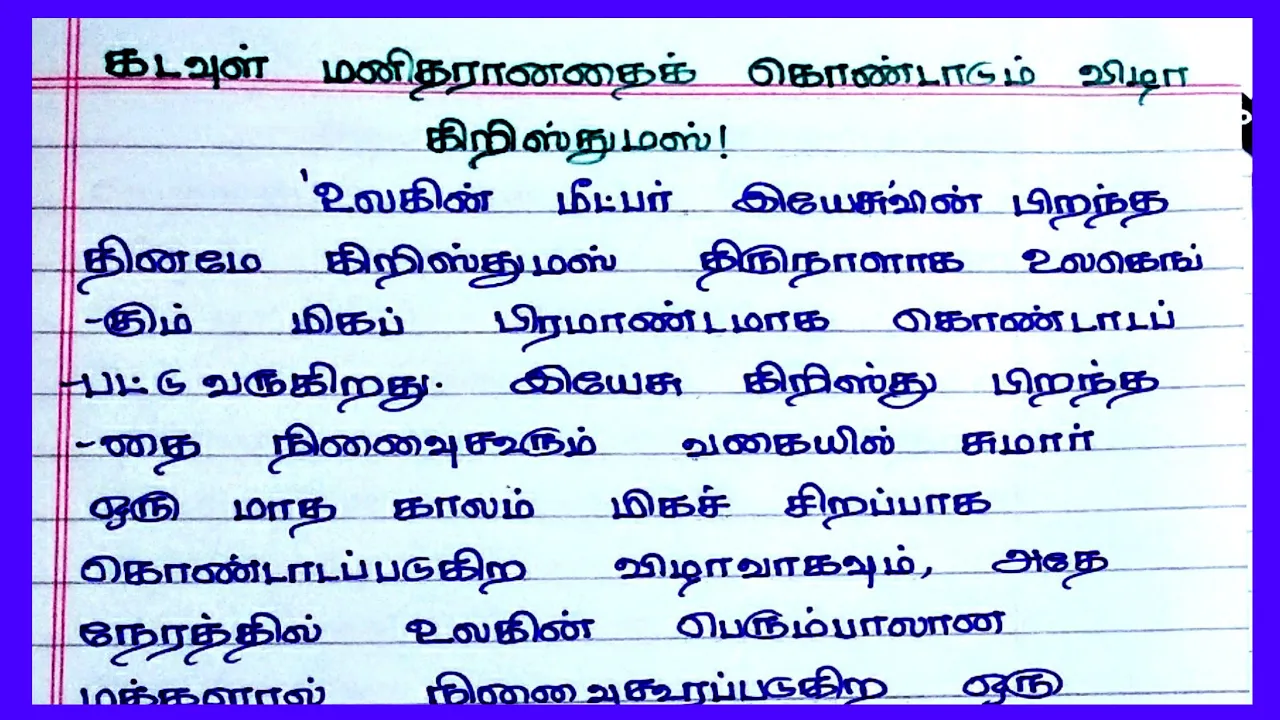 கடவுள் மனிதரானதைக் கொண்டாடும் விழா
கிறிஸ்துமஸ்!
'உலகின் மீட்பர் இயேசுவின் பிறந்த
தினமே கிறிஸ்துமஸ் திருநாளாக உலகெங்
-கும் மிகப் பிரமாண்டமாக கொண்டாடப்
-பட்டு வருகிறது. இயேசு கிறிஸ்து பிறந்த
-தை நினைவுகூரும் வகையில் சுமார்
ஒரு மாத காலம் மிகச் சிறப்பாக
கொண்டாடப்படுகிற விழாவாகவும், அதே
நேரத்தில் உலகின் பெரும்பாலான
மக்களால் நினைவுகூரப்படுகிற ஒரு